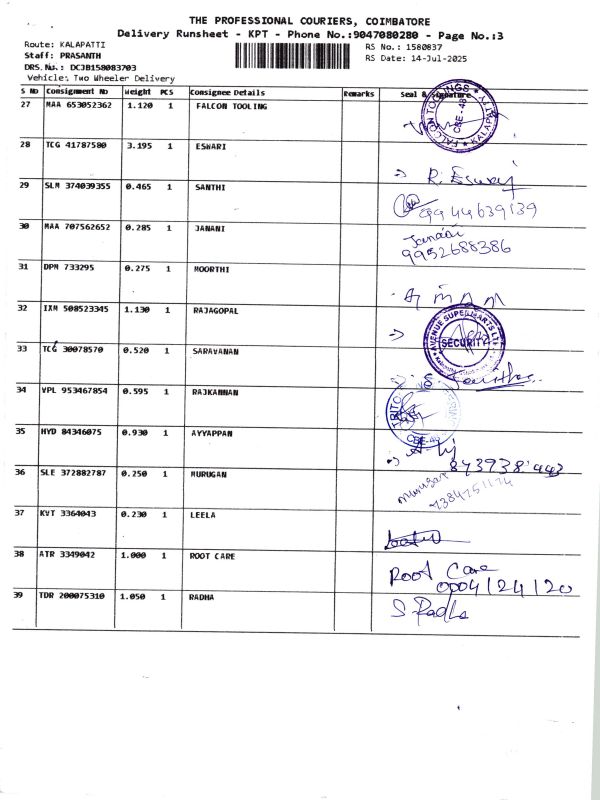 THE PROFESSIONAL COURIERS, COIMBATORE
Delivery Runsheet - KPT - Phone No.:9047080280 - Page No.:3
Route: KALAPATTI
RS No.: 1580837
Staff: PRASANTH
RS Date: 14-Jul-2025
DRS.No.: DCJB158083703
Vehicle: Two Wheeler Delivery
S No Consignment No Weight PCS Consignee Details Remarks Seal & Signature
27 MAA 653052362 1.120 1 FALCON TOOLING
FALCON TOOLINGS KALAPATTY CBE-48
28 TCG 41787580 3.195 1 ESWARI
R. Eswari
29 SLM 374039355 0.465 1 SANTHI
9944639139
30 MAA 707562652 0.285 1 JANANI
Janani
9952688386
31 DPM 733295 0.275 1 MOORTHI
32 IXM 508523345 1.130 1 RAJAGOPAL
AVENUE SUPERMARTS LTD
SECURITY
33 TCG 30078570 0.520 1 SARAVANAN
34 VPL 953467854 0.595 1 RAJKANNAN
CBE-49
35 HYD 84346075 0.930 1 AYYAPPAN
36 SLE 372882787 0.250 1 MURUGAN
Murugan
37 KVT 3364043 0.230 1 LEELA
38 ATR 3349042 1.000 1 ROOT CARE
Root Care
39 TDR 200075310 1.050 1 RADHA
S. Radha